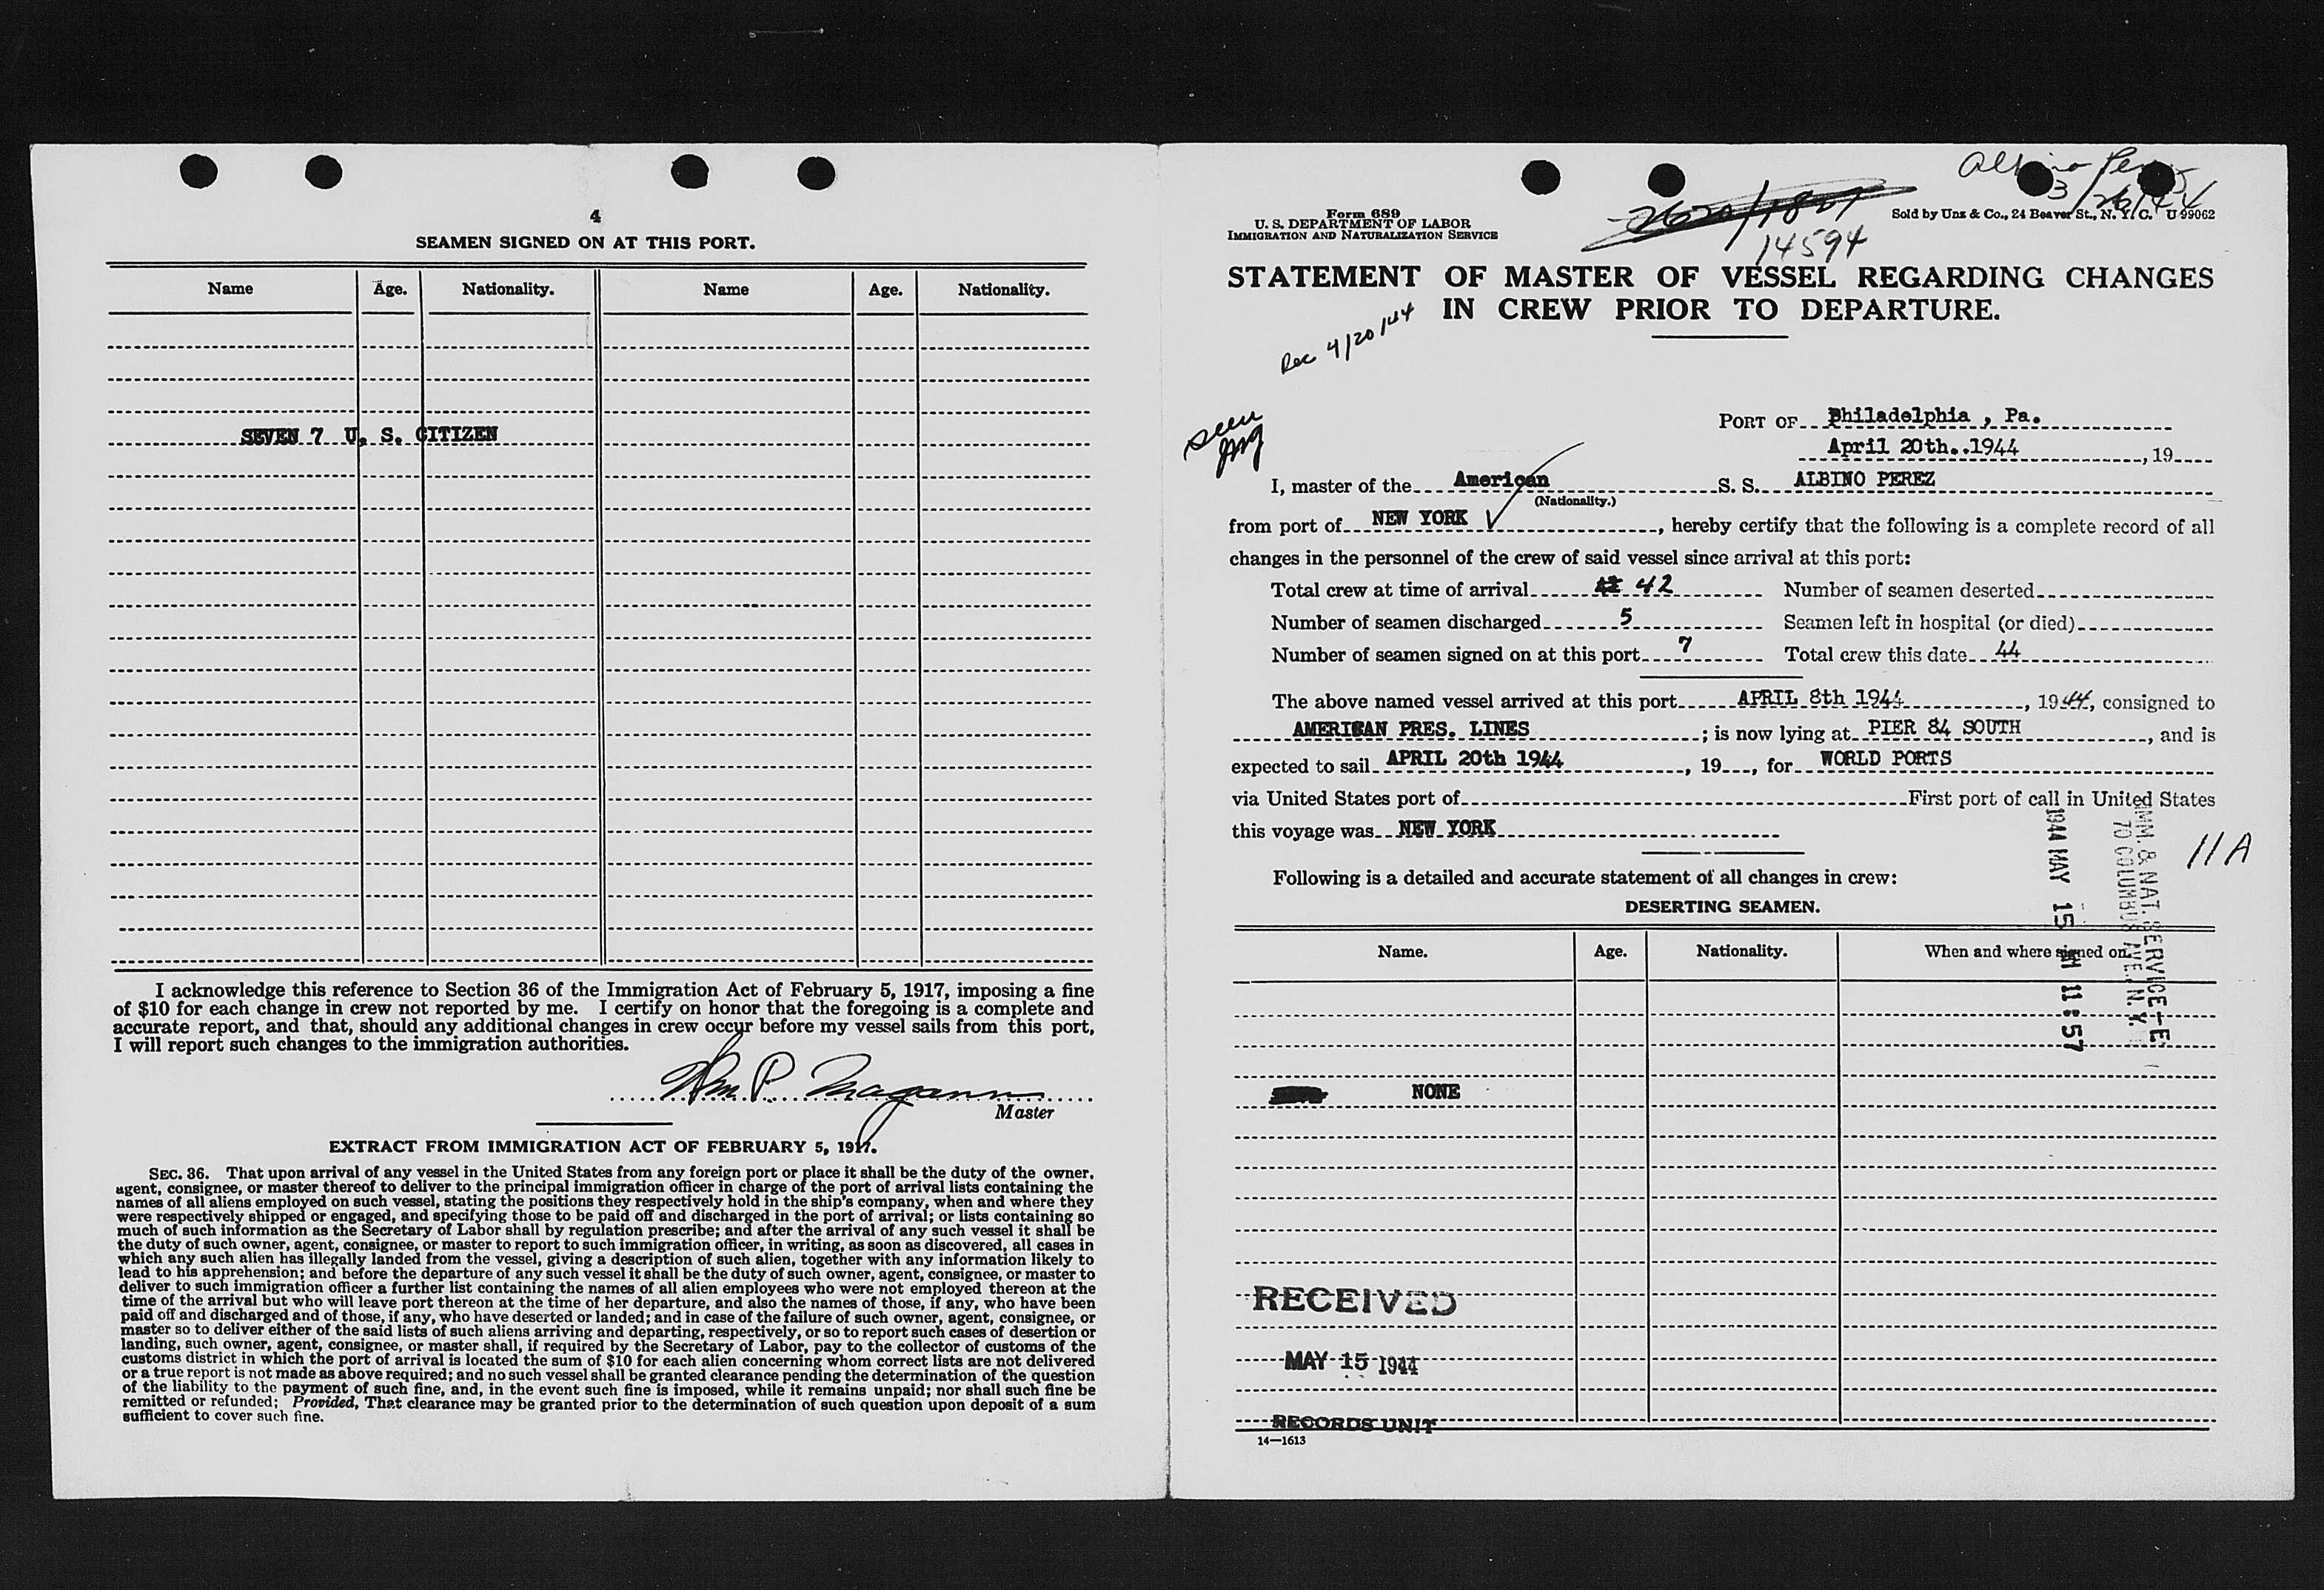 4
SEAMEN SIGNED ON AT THIS PORT.
Name Age. Nationality. Name Age. Nationality.
SEVEN 7 U. S. CITIZEN
I acknowledge this reference to Section 36 of the Immigration Act of February 5, 1917, imposing a fine
of $10 for each change in crew not reported by me. I certify on honor that the foregoing is a complete and
accurate report, and that, should any additional changes in crew occur before my vessel sails from this port,
I will report such changes to the immigration authorities.
Wm P. Magann
Master
EXTRACT FROM IMMIGRATION ACT OF FEBRUARY 5, 1917.
SEC. 36. That upon arrival of any vessel in the United States from any foreign port or place it shall be the duty of the owner,
agent, consignee, or master thereof to deliver to the principal immigration officer in charge of the port of arrival lists containing the
names of all aliens employed on such vessel, stating the positions they respectively hold in the ship's company, when and where they
were respectively shipped or engaged, and specifying those to be paid off and discharged in the port of arrival; or lists containing so
much of such information as the Secretary of Labor shall by regulation prescribe; and after the arrival of any such vessel it shall be
the duty of such owner, agent, consignee, or master to report to such immigration officer, in writing, as soon as discovered, all cases in
which any such alien has illegally landed from the vessel, giving a description of such alien, together with any information likely to
lead to his apprehension; and before the departure of any such vessel it shall be the duty of such owner, agent, consignee, or master to
deliver to such immigration officer a further list containing the names of all alien employees who were not employed thereon at the
time of the arrival but who will leave port thereon at the time of her departure, and also the names of those, if any, who have been
paid off and discharged and of those, if any, who have deserted or landed; and in case of the failure of such owner, agent, consignee, or
master so to deliver either of the said lists of such aliens arriving and departing, respectively, or so to report such cases of desertion or
landing, such owner, agent, consignee, or master shall, if required by the Secretary of Labor, pay to the collector of customs of the
customs district in which the port of arrival is located the sum of $10 for each alien concerning whom correct lists are not delivered
or a true report is not made as above required; and no such vessel shall be granted clearance pending the determination of the question
of the liability to the payment of such fine, and, in the event such fine is imposed, while it remains unpaid; nor shall such fine be
remitted or refunded; Provided, That clearance may be granted prior to the determination of such question upon deposit of a sum
sufficient to cover such fine.
Albino Perez
3/26/44
Form 689
U. S. DEPARTMENT OF LABOR
IMMIGRATION AND NATURALIZATION SERVICE
Sold by Unz & Co., 24 Beaver St., N. Y. C. U 99062
14594
STATEMENT OF MASTER OF VESSEL REGARDING CHANGES
IN CREW PRIOR TO DEPARTURE.
Rec 4/20/44
seen
PORT OF Philadelphia , Pa.
April 20th. .1944 , 19
I, master of the American S. S. ALBINO PEREZ
(Nationality.)
from port of NEW YORK , hereby certify that the following is a complete record of all
changes in the personnel of the crew of said vessel since arrival at this port:
Total crew at time of arrival 42 Number of seamen deserted
Number of seamen discharged 5 Seamen left in hospital (or died)
Number of seamen signed on at this port 7 Total crew this date 44
The above named vessel arrived at this port APRIL 8th 1944 , 1944, consigned to
AMERICAN PRES. LINES ; is now lying at PIER 84 SOUTH , and is
expected to sail APRIL 20th 1944 , 19 , for WORLD PORTS
via United States port of First port of call in United States
this voyage was NEW YORK
11A
IMM. & NAT. SERVICE-E
70 COLUMBUS AVE. N.Y.
1944 MAY 15 AM 11:57
Following is a detailed and accurate statement of all changes in crew:
DESERTING SEAMEN.
Name. Age. Nationality. When and where signed on.
NONE
RECEIVED
MAY 15 1944
RECORDS UNIT
14—1613